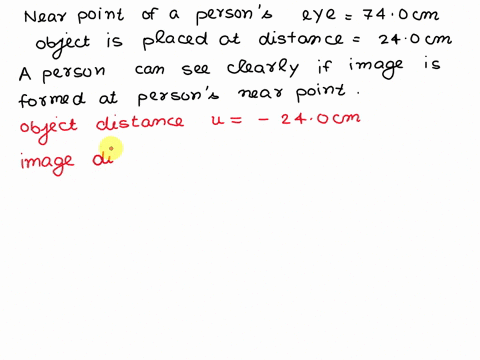 Near point of a person's eye = 74.0 cm
object is placed at distance = 24.0 cm
A person can see clearly if image is
formed at person's near point.
object distance u = - 24.0 cm
image di